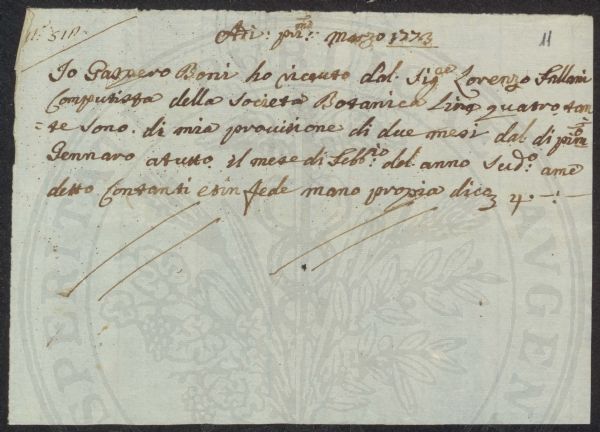 Adì: pir:mo Marzo 1773
11
Io Gaspero Boni ho riceuto dal: Sig:re Lorenzo
Computista della Societa Botanica Lire quatro, tan=
=te sono: di mia provisione di due mesi dal di pirmo
Gennaro a tutto: il mese di Febb:ro del: anno Sud:o ame
detto Contanti e in fede mano propria dico 4.-:-
PROSPERITATI AUGEN